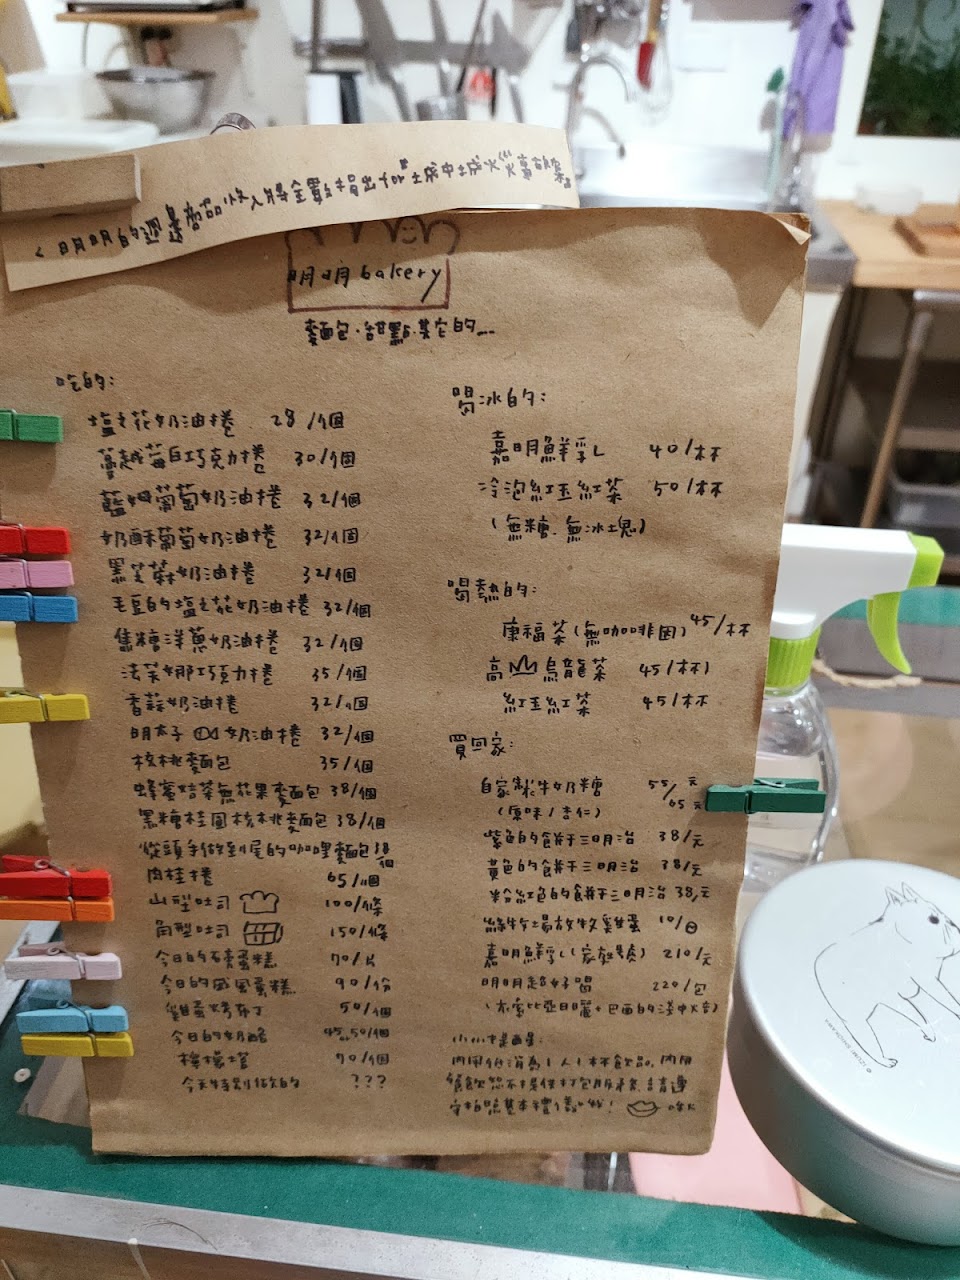 <明明的週邊商品收入將全數捐出for"土城中城火災事故案"
明明bakery
麵包.甜點.其它的...
吃的:
塩之花奶油捲 28/個
蔓越莓白巧克力捲 30/個
藍姆葡萄奶油捲 32/個
奶酥葡萄奶油捲 32/個
黑芝蔴奶油捲 32/個
毛豆的塩之花奶油捲 32/個
焦糖洋蔥奶油捲 32/個
法芙娜巧克力捲 35/個
香蒜奶油捲 32/個
明太子奶油捲 32/個
核桃麵包 35/個
蜂蜜焙茶無花果麵包 38/個
黑糖桂圓核桃麵包 38/個
從頭手做到尾的咖哩麵包 38個
肉桂捲 65/個
山型吐司 100/條
角型吐司 150/條
今日的磅蛋糕 70/片
今日的戚風蛋糕 90/份
雞蛋烤布丁 50/個
今日的奶酪 45.50/個
檸檬塔 70/個
今天特別做的 ???
喝冰的:
嘉明鮮乳 40/杯
冷泡紅玉紅茶 50/杯
(無糖.無冰塊)
喝熱的:
康福茶(無咖啡因) 45/杯
高山烏龍茶 45/杯)
紅玉紅茶 45/杯
買回家:
自家製牛奶糖 55/元
(原味/杏仁) /65元
紫色的餅干三明治 38/元
黃色的餅干三明治 38/元
粉紅色的餅干三明治 38/元
綠牧場放牧雞蛋 10/
嘉明鮮乳(家庭號) 210/元
明明超好喝 220/包
(衣索比亞日曬+巴西的淺中火音)
小小提醒:
內用低消為1人1杯飲品.內用
餐飲恕不提供打包服務.請遵
守拍照基本禮儀呦!